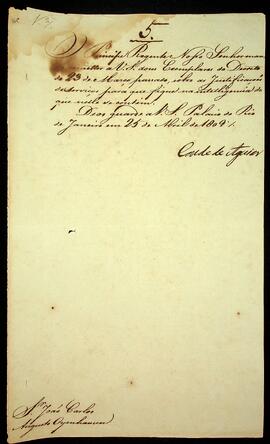 5.
O Principe Regente Nosso Senhor man
remetter a V. S. dous Exemplares do Decreto
de 23 de Março passado, sobre as Justificaçoens
de serviços para que fique na intelligencia do
que nelle se contem.
Deos guarde a V. S. Palacio do Rio
de Janeiro em 25 de Abril de 1809
Conde de Aguiar
Snr. João Carlos
Augusto Oyenhausen